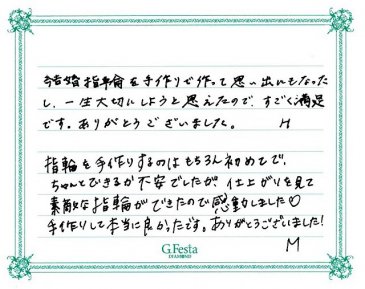 結婚指輪を手作りで作って思い出にもなった
し、一生大切にしようと思えたので、すごく満足
です。ありがとうございました。 H
指輪を手作りするのはもちろん初めてで、
ちゃんとできるか不安でしたが、仕上がりを見て
素敵な指輪ができたので感動しました♡
手作りして本当に良かったです。ありがとうございました!
M
G.Festa
DIAMOND